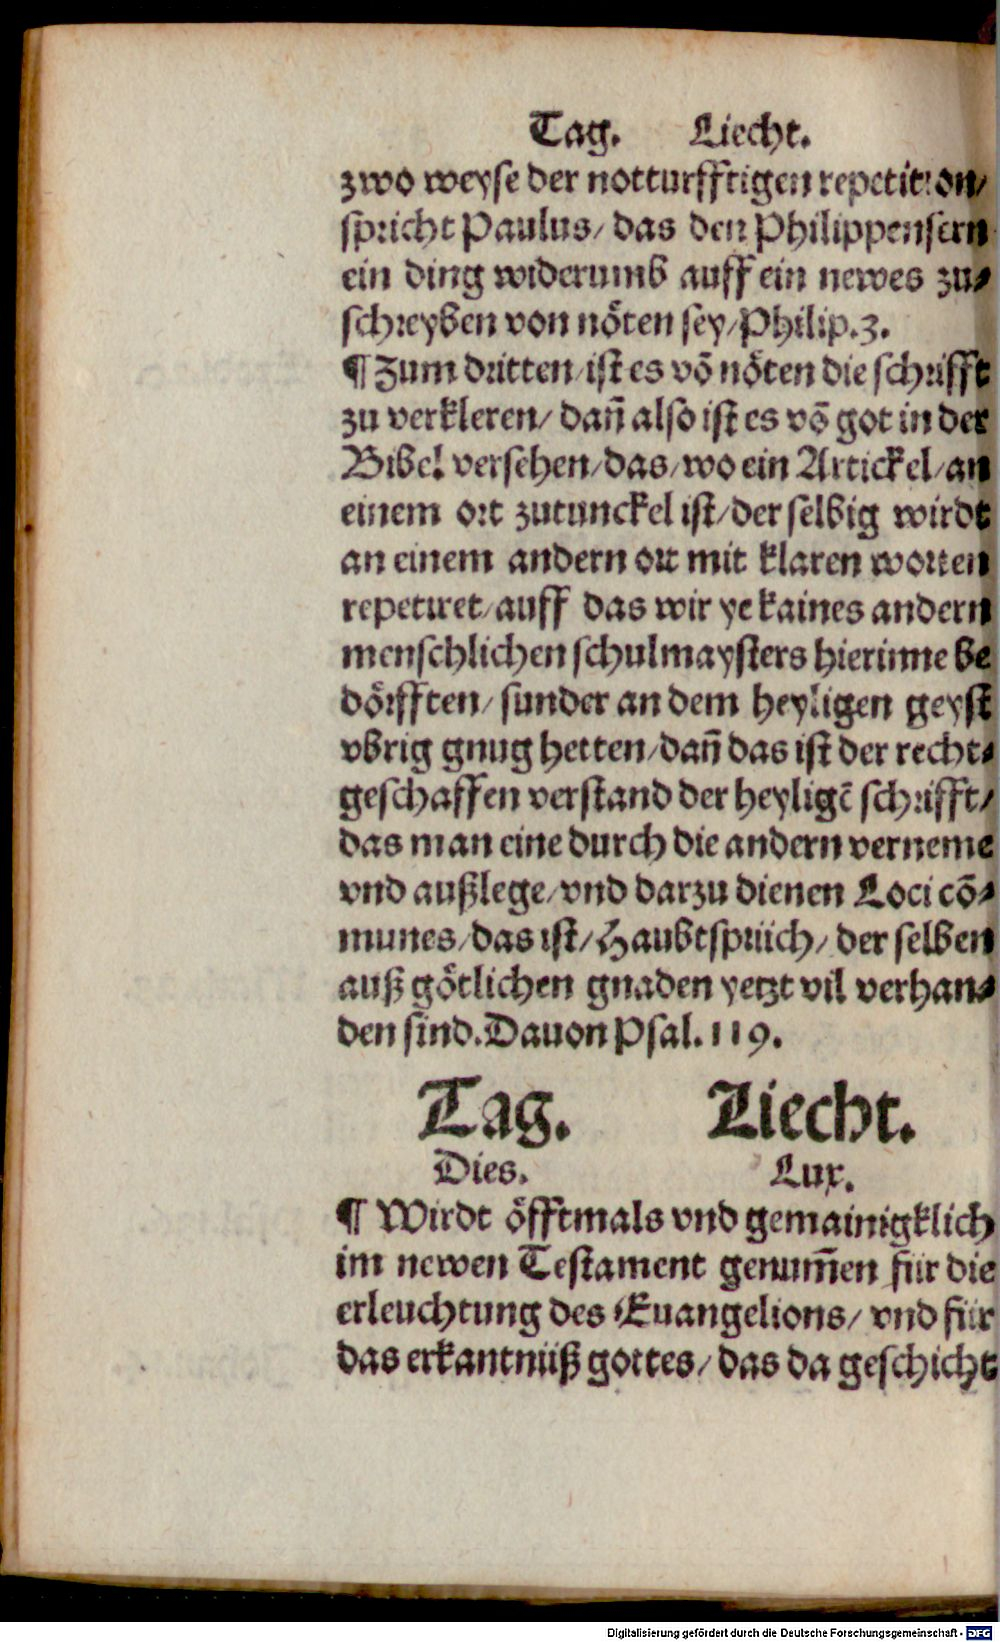 Tag. Liecht.
zwo weyse der notturfftigen repetition/
spricht Paulus/ das den Philippensern
ein ding widerumb auff ein newes zu-
schreyben von nöten sey/ Philip.3.
¶ Zum dritten/ ist es võ nöten die schrifft
zu verkleren/ dañ also ist es võ got in der
Bibel versehen/ das/ wo ein Artickel/ an
einem ort zutunckel ist/ der selbig wirdt
an einem andern ort mit klaren worten
repetiret/ auff das wir ye kaines andern
menschlichen schulmaysters hierinne be
dörfften/ sunder an dem heyligen geyst
vbrig gnug hetten/ dañ das ist der recht-
geschaffen verstand der heyligẽ schrifft/
das man eine durch die andern verneme
vnd außlege/ vnd darzu dienen Loci cõ-
munes/ das ist/ Haubtsprüch/ der selben
auß götlichen gnaden yetzt vil verhan-
den sind. Dauon Psal. 119.
Tag. Liecht.
Dies. Lux.
¶ Wirdt öfftmals vnd gemainigklich
im newen Testament genum̃en für die
erleuchtung des Euangelions/ vnd für
das erkantnüß gottes/ das da geschicht
Digitalisierung gefördert durch die Deutsche Forschungsgemeinschaft - DFG